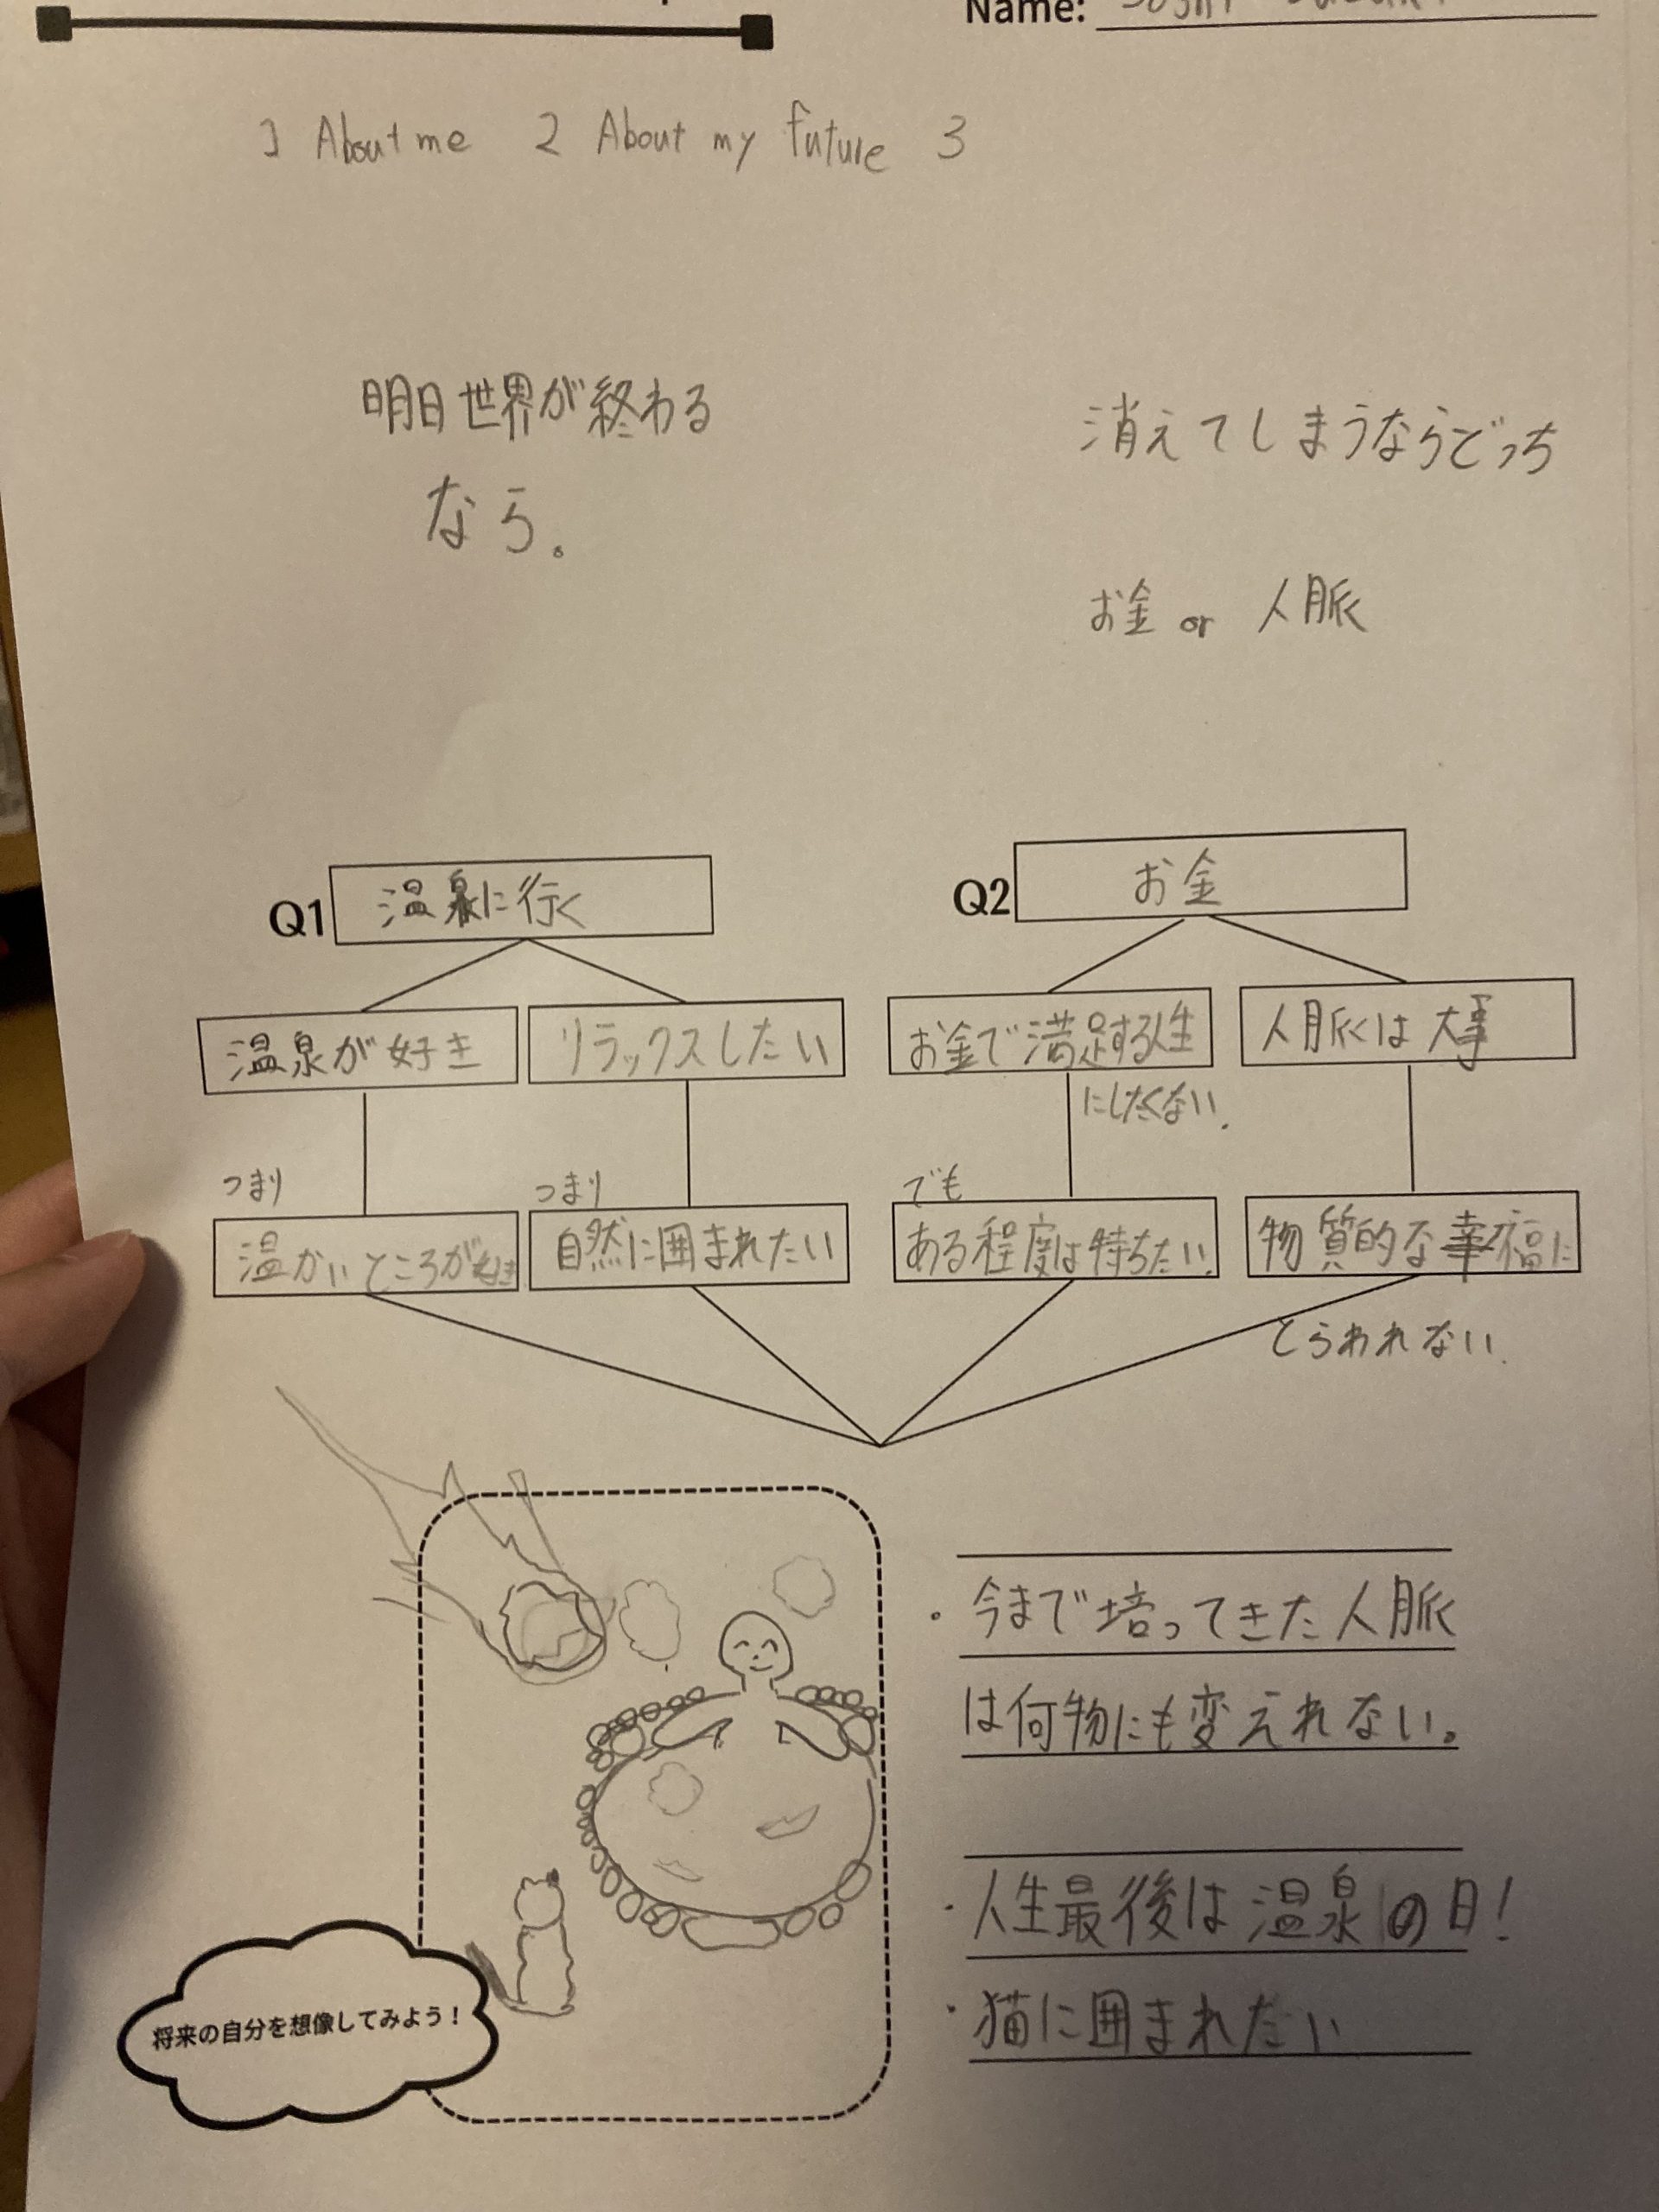 Name:
1 About me 2 About my future 3
明日世界が終わる
なら。
消えてしまうならどっち
お金 or 人脈
Q1 温泉に行く
温泉が好き
リラックスしたい
つまり
つまり
温かいところが好き
自然に囲まれたい
Q2 お金
お金で満足する人生
にしたくない.
人脈は大事
でも
ある程度は持ちたい.
物質的な幸福に
とらわれない.
・今まで培ってきた人脈
は何物にも変えれない。
・人生最後は温泉の日!
・猫に囲まれたい
将来の自分を想像してみよう!